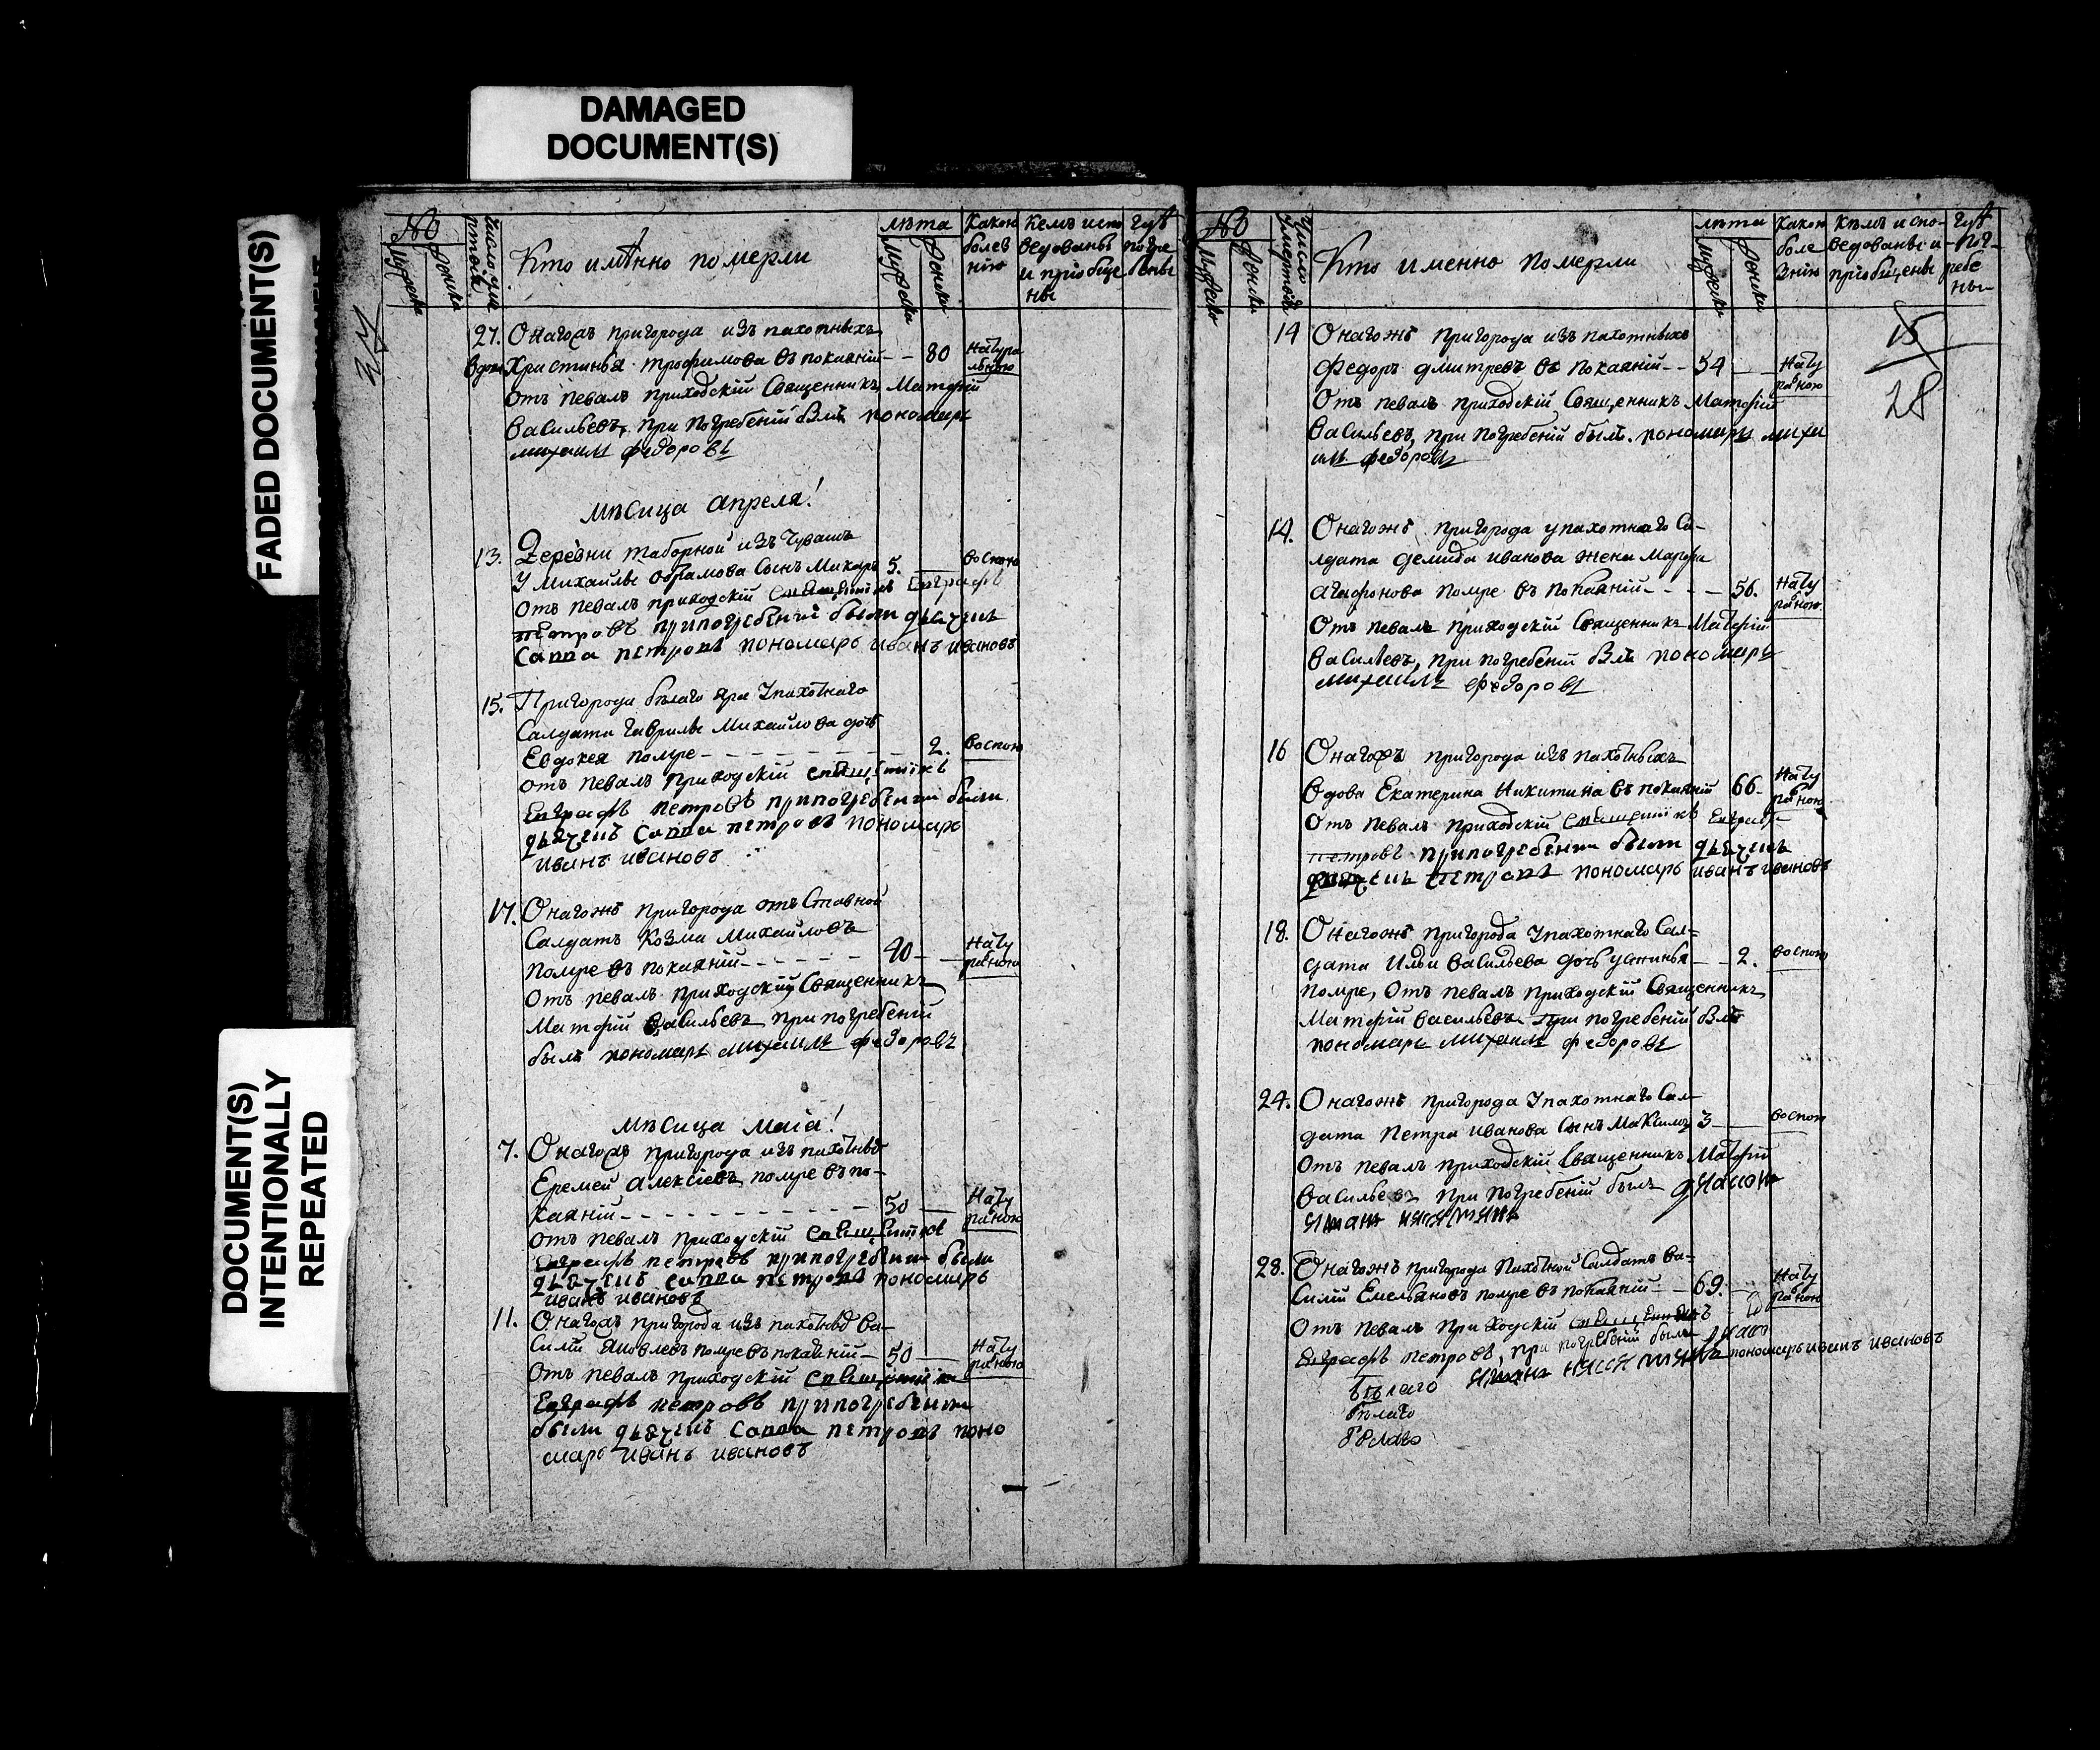 DAMAGED
DOCUMENT(S)
FADED DOCUMENT(S)
DOCUMENT(S)
INTENTIONALLY
REPEATED
№
Кто имѣнно померли
лѣта
Какою болезнію
Кемъ испо
ведованы
и приобще
ны
Гдѣ
погре
бены
27. Онагожъ пригорода изъ пахотныхъ
вдова Христинья трофимова въ покаяній - - 80 Натура
льною
Отъ певалъ приходскій Священникъ Матфій
Васильевъ, при погребеній былъ пономарь
михаилъ федоровъ
мѣсица апреля!
13. Деревни таборной изъ Чувашъ
У Михайлы Обрамова Сынъ Макаръ 5. воспою
отъ певалъ приходскій священникъ Евграфъ
петровъ припогребеніи были дьячекъ
Савва петровъ пономарь иванъ ивановъ
15. Пригорода бѣлаго яра Упахотнаго
Салдата Гаврилы Михайлова дочь
Евдокея помре - - - - 2. воспою
отъ певалъ приходскій священникъ
Евграфъ петровъ припогребеніи были
дьячекъ Савва петровъ пономарь
иванъ ивановъ
17. Онагожъ пригорода отъ Ставной
Салдатъ Козма Михайловъ
помре въ покаяній - - - - 90 - Нату
ралною
Отъ певалъ приходскій Священникъ
Матфій Васильевъ при погребеній
былъ пономарь михаилъ федоровъ
мѣсица маіа!
7. Онагожъ пригорода изъ пахотныхъ
Еремей алексіевъ помре въ по-
каяній - - - - 50 Нату
ралною
отъ певалъ приходскій священникъ
Евграфъ петровъ припогребеніи были
дьячекъ савва петровъ пономарь
иванъ ивановъ
11. Онагожъ пригорода изъ пахотныхъ Ва-
силій Яковлевъ помре въ покаяній - 50 Нату
ралною
Отъ певалъ приходскій священникъ
Евграфъ петровъ припогребеніи
были дьячекъ Савва петровъ поно
марь иванъ ивановъ
№
Кто именно померли
лѣта
Какою
боле
знію
Кѣмъ испо-
ведованы и
приобщены
Гдѣ
пог-
ребе
ны
15
28
14 Онагожъ пригорода изъ пахотныхъ
Федоръ дмитревъ въ покаяній - - 54 Нату
ралною
Отъ певалъ приходскій Священникъ Матфій
Васильевъ, при погребеній былъ пономарь миха
илъ федоровъ
14. Онагожъ пригорода упахотнаго Са-
лдата демида иванова жена марфа
агафонова помре въ покаяній - - - 56. Нату
ралною
Отъ певалъ приходскій Священникъ Матфій
Васильевъ, при погребеній былъ пономарь
михаилъ федоровъ
16 Онагожъ пригорода изъ пахотныхъ
вдова Екатерина Никитина въ покаяній 66 - Нату
ралною
Отъ певалъ приходскій священникъ Евграфъ
петровъ припогребеніи были дьячекъ
петровъ пономарь иванъ ивановъ
18. Онагожъ пригорода Упахотнаго Сал=
дата Ильи Васильева дочь устинья - - 2. воспою
помре, Отъ певалъ приходскій Священникъ
Матфій Васильевъ при погребеній былъ
пономарь михаилъ федоровъ
24. Онагожъ пригорода Упахотнаго Сал
дата Петра иванова Сынъ Максимъ 3 воспою
Отъ певалъ приходскій Священникъ Матфій
Васильевъ при погребеній былъ
28. Онагожъ пригорода пахотной Салдатъ Ва-
силій Емельяновъ помре въ покаяній - 69. Нату
ралною
Отъ певалъ приходскій священникъ
Евграфъ петровъ, при погребеній былъ
пономарь иванъ ивановъ
бѣлаго
бѣлаго